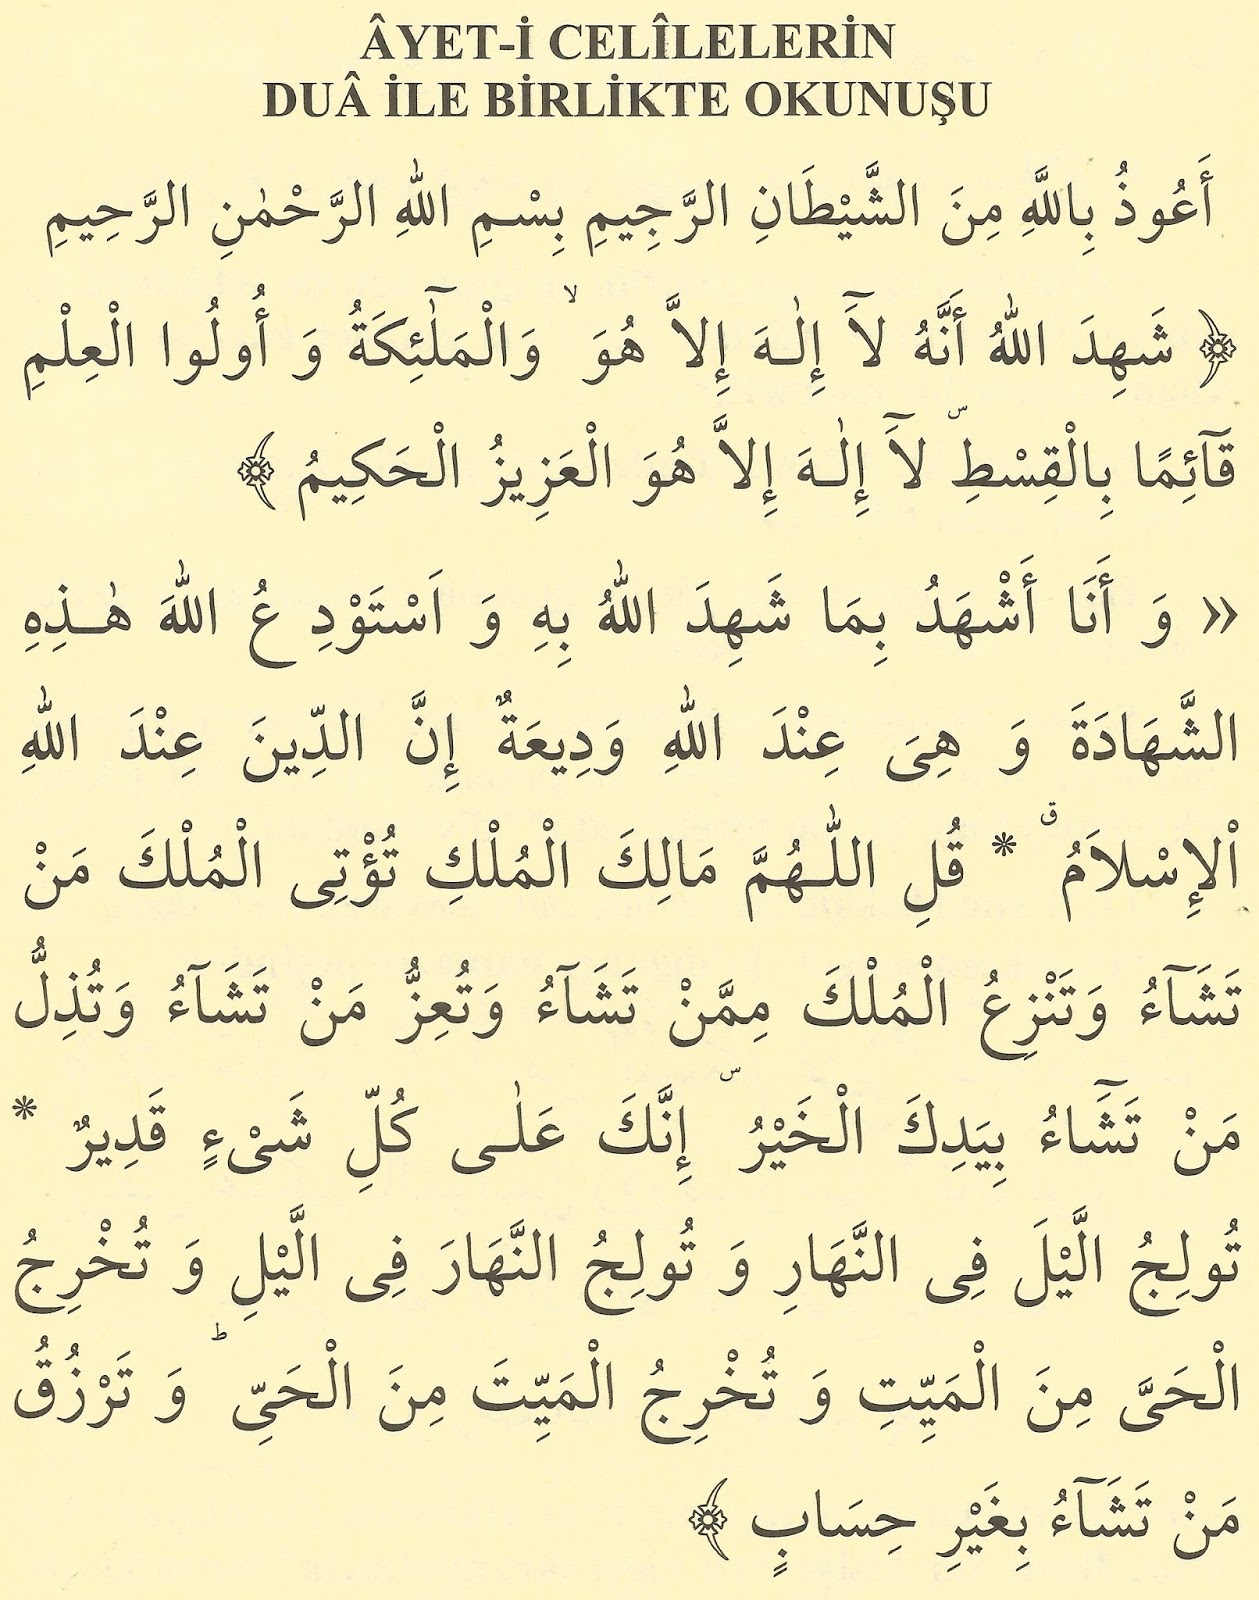 ÂYET-İ CELÎLELERİN
DUÂ İLE BİRLİKTE OKUNUŞU
أَعُوذُ بِاللَّهِ مِنَ الشَّيْطَانِ الرَّجِيمِ بِسْمِ اللهِ الرَّحْمٰنِ الرَّحِيمِ
﴿ شَهِدَ اللهُ أَنَّهُ لَآ إِلٰـهَ إِلاَّ هُوَ ۙ وَالْمَلٰٓئِكَةُ وَ أُولُوا الْعِلْمِ
قَآئِمًا بِالْقِسْطِ ۜ لَآ إِلٰـهَ إِلاَّ هُوَ الْعَزِيزُ الْحَكِيمُ ﴾
« وَ أَنَا أَشْهَدُ بِمَا شَهِدَ اللهُ بِهِ وَ اَسْتَوْدِ عُ اللهَ هٰـذِهِ
الشَّهَادَةَ وَ هِىَ عِنْدَ اللهِ وَدِيعَةٌ إِنَّ الدِّينَ عِنْدَ اللهِ
اْلإِسْلاَمُ ۗ * قُلِ اللّٰـهُمَّ مَالِكَ الْمُلْكِ تُؤْتِى الْمُلْكَ مَنْ
تَشَآءُ وَتَنْزِعُ الْمُلْكَ مِمَّنْ تَشَآءُ وَتُعِزُّ مَنْ تَشَآءُ وَتُذِلُّ
مَنْ تَشَٓاءُ بِيَدِكَ الْخَيْرُ ۜ إِنَّكَ عَلٰـى كُلِّ شَىْءٍ قَدِيرٌ *
تُولِجُ الَّيْلَ فِى النَّهَارِ وَ تُولِجُ النَّهَارَ فِى الَّيْلِ وَ تُخْرِجُ
الْحَىَّ مِنَ الْمَيِّتِ وَ تُخْرِجُ الْمَيِّتَ مِنَ الْحَىِّ ؕ وَ تَرْزُقُ
مَنْ تَشَآءُ بِغَيْرِ حِسَابٍ ﴾